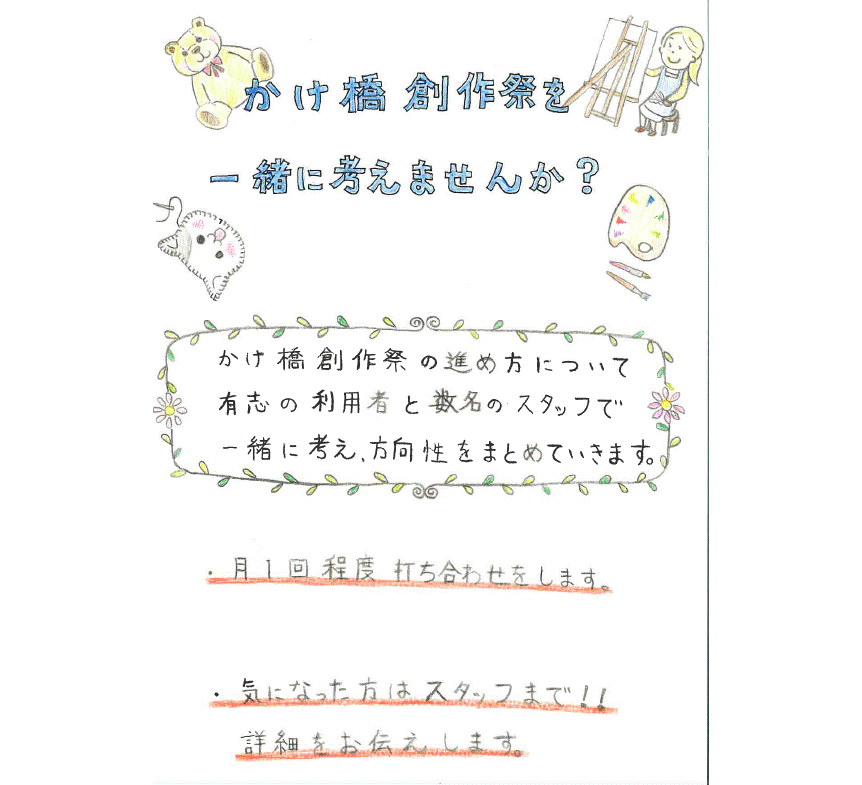 かけ橋 創作祭を
一緒に考えませんか？
かけ橋創作祭の進め方について
有志の利用者と数名のスタッフで
一緒に考え、方向性をまとめていきます。
・月1回程度 打ち合わせをします。
・気になった方はスタッフまで!!
詳細をお伝えします。